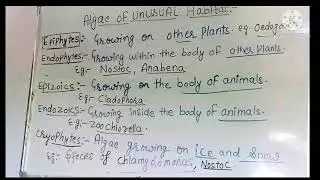 Algae of UNUSUAL Habitat:-
Epiphytes:- Growing on other Plants. eg. Oedogon
Endophytes:- Growing within the body of other Plants.
Eg:- Nostoc, Anabena
Epizoics:- Growing on the body of animals.
Eg:- Cladophora
Endozoics:- Growing inside the body of animals.
Eg:- Zoochlorella.
Cryophytes:- Algae growing on ice and Snow
Eg:- species of Chlamydomonas, Nostoc